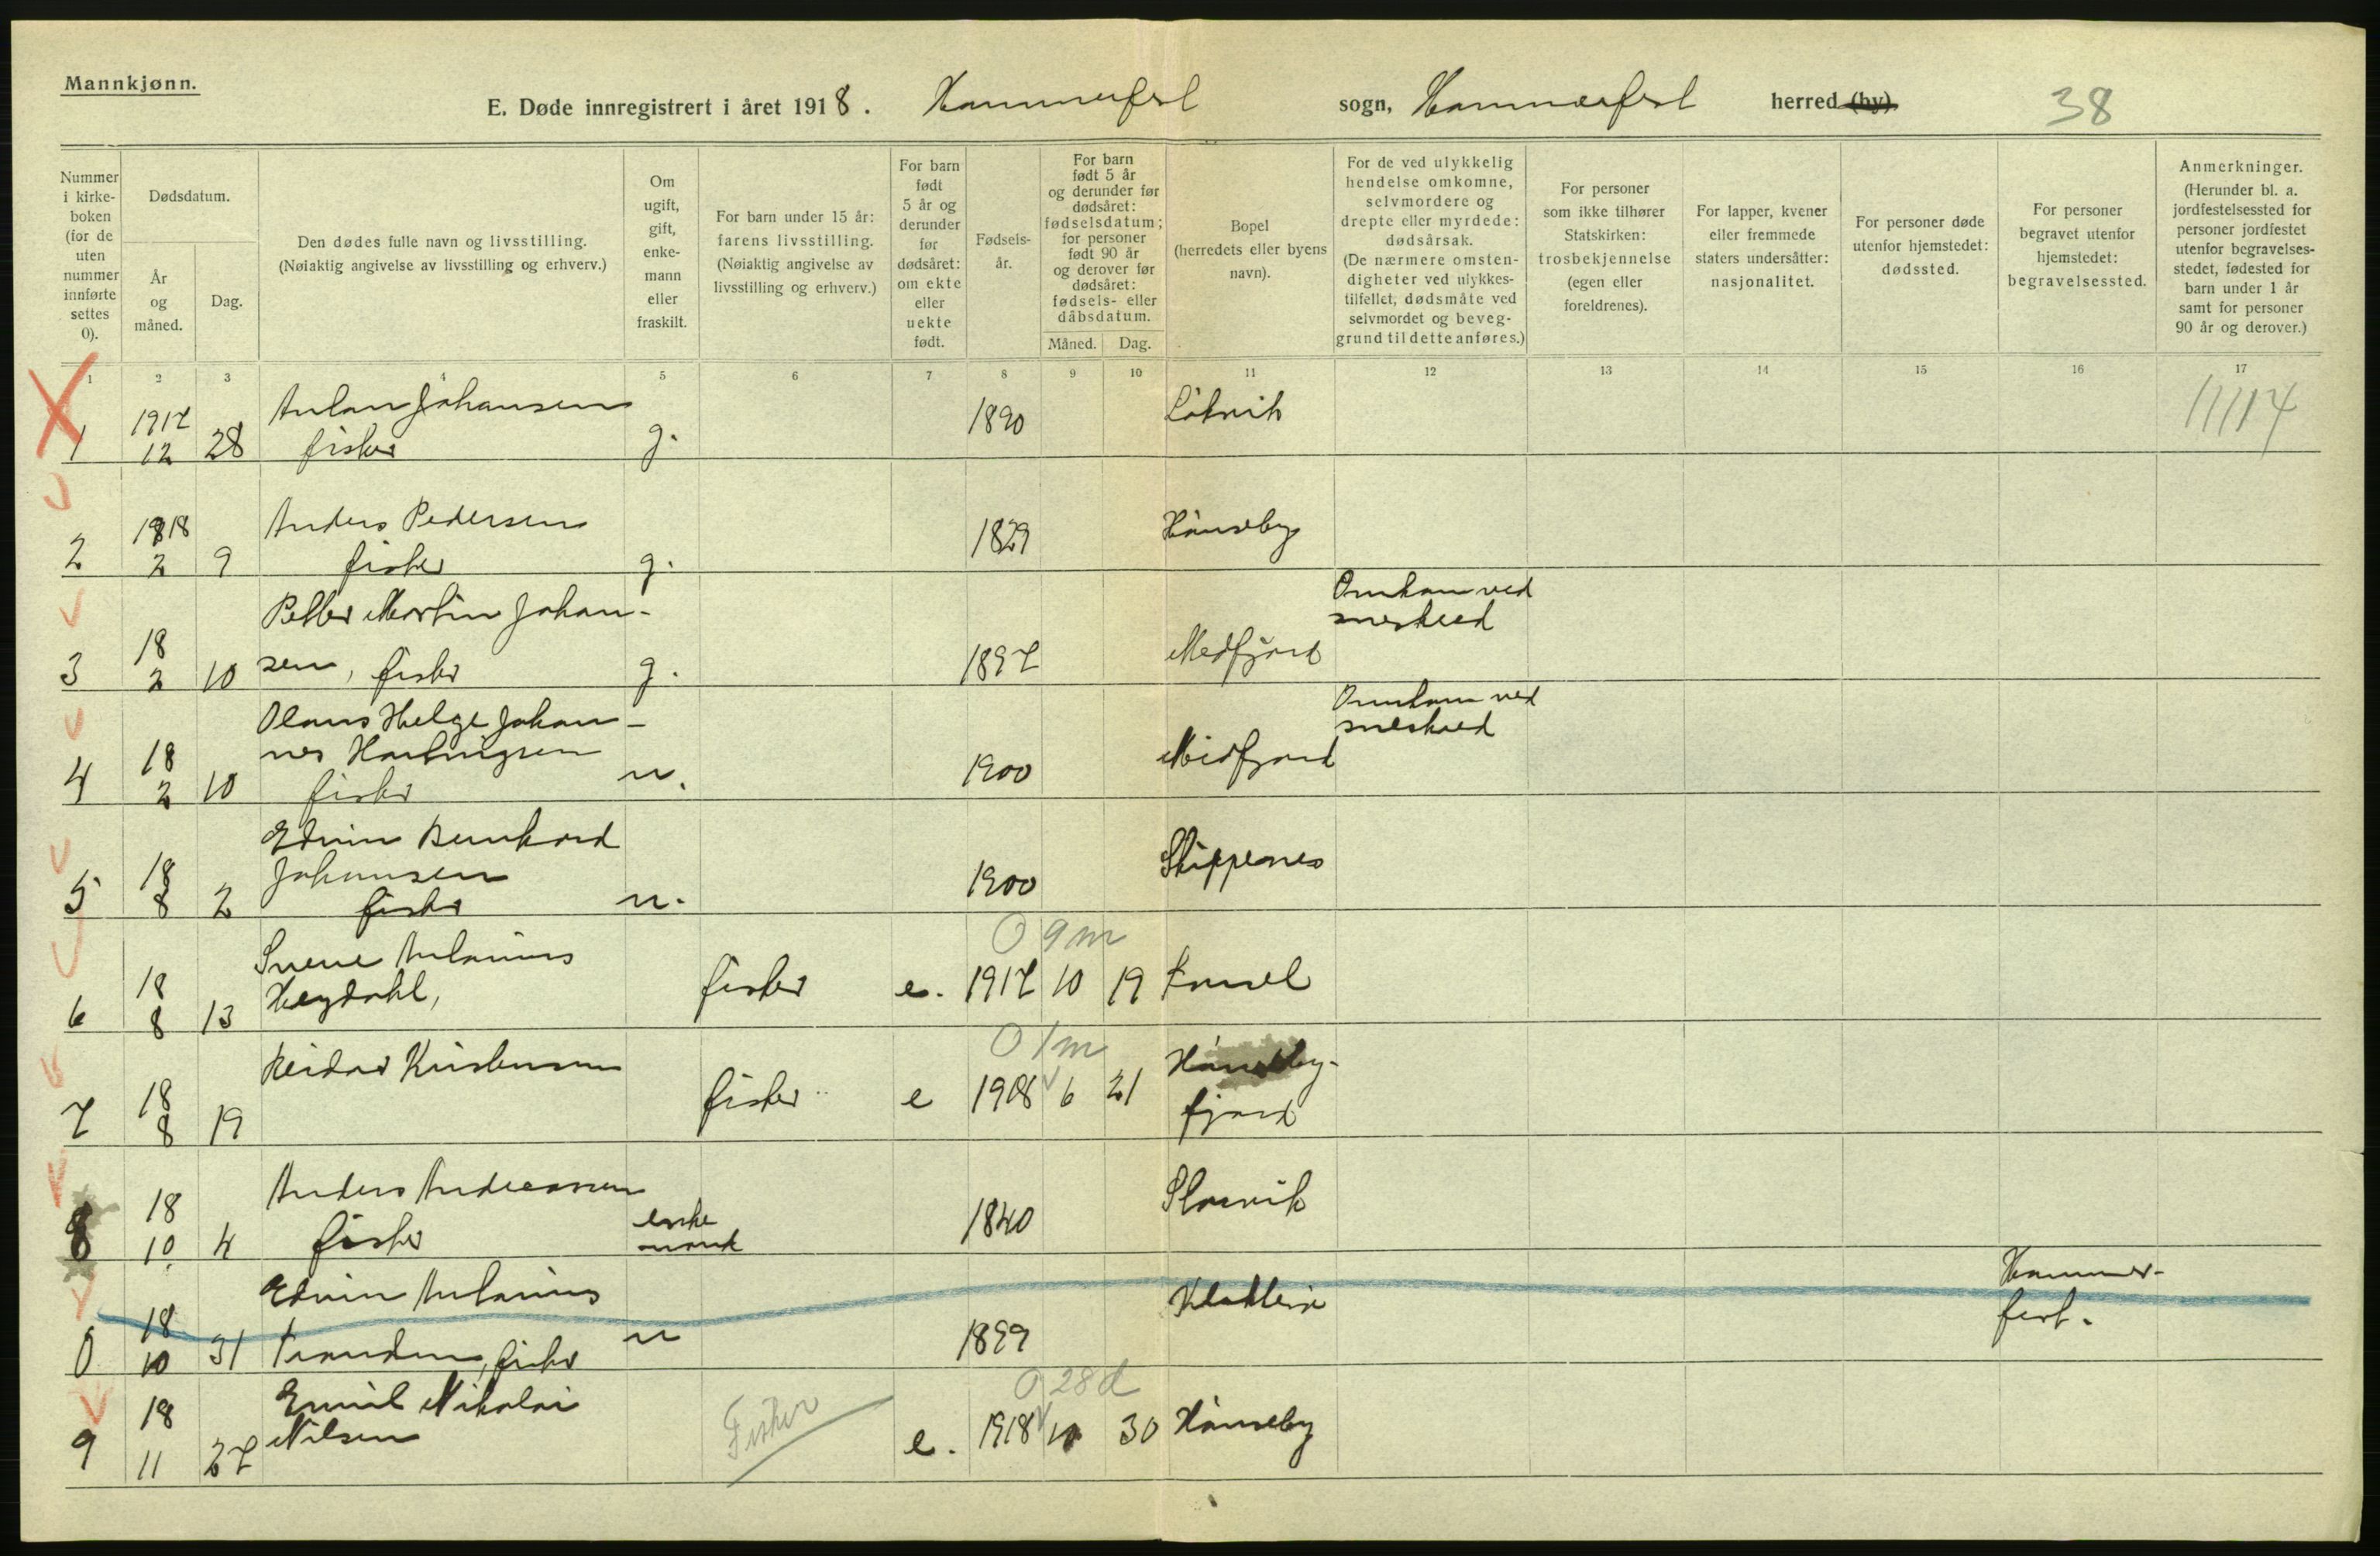 Mannkjønn.
E. Døde innregistrert i året 1918. Hammerfest sogn, Hammerfest herred (by).
38
Nummer i kirke-boken (for de uten nummer innførte settes 0).
Dødsdatum.
År og måned.
Dag.
Den dødes fulle navn og livsstilling.
(Nøiaktig angivelse av livsstilling og erhverv.)
Om ugift, gift, enke-mann eller fraskilt.
For barn under 15 år:
farens livsstilling.
(Nøiaktig angivelse av livsstilling og erhverv.)
For barn født 5 år og derunder før dødsåret: om ekte eller uekte født.
Fødsels-år.
For barn født 5 år og derunder før dødsåret: fødselsdatum; for personer født 90 år og derover før dødsåret: fødsels- eller dåbsdatum.
Måned.
Dag.
Bopel
(herredets eller byens navn).
For de ved ulykkelig hendelse omkomne, selvmordere og drepte eller myrdede: dødsårsak.
(De nærmere omsten-digheter ved ulykkes-tilfellet, dødsmåte ved selvmordet og beveg-grund til dette anføres.)
For personer som ikke tilhører Statskirken: trosbekjennelse (egen eller foreldrenes).
For lapper, kvener eller fremmede staters undersåtter: nasjonalitet.
For personer døde utenfor hjemstedet: dødssted.
For personer begravet utenfor hjemstedet: begravelsessted.
Anmerkninger.
(Herunder bl. a. jordfestelsessted for personer jordfestet utenfor begravelses-stedet, fødested for barn under 1 år samt for personer 90 år og derover.)
1 2 3 4 5 6 7 8 9 10 11 12 13 14 15 16 17
1 1917 12 28 Anton Johansen fisker g. 1890
2 1918 2 9 Anders Pedersen fisker g. 1829 Hönseby
3 18 2 10 Petter Martin Johan-
sen, fisker g. 1897 Medfjord Omkom ved
sneskred
4 18 2 10 Olaus Helge Johan-
nes Hartvigsen
fisker u. 1900 Medfjord Omkom ved
sneskred
5 18 8 2 Edvin Bernhard
Johansen
fisker u. 1900 Skippernes
0 9 m
6 18 8 13 Sverre Antonius
Hegdahl, fisker e. 1917 10 19
0 1 m
7 18 8 19 Reidar Kristensen fisker e 1918 6 21 Hönseby-
fjord
8 18 10 4 Anders Andreassen
fisker enke
mand 1840
0 18 10 31 Edvin Antonius
fisker u 1899 Hammer-
fest.
0 28 d
9 18 11 27 Emil Nikolai
Nilsen Fisker e. 1918 10 30 Hönseby